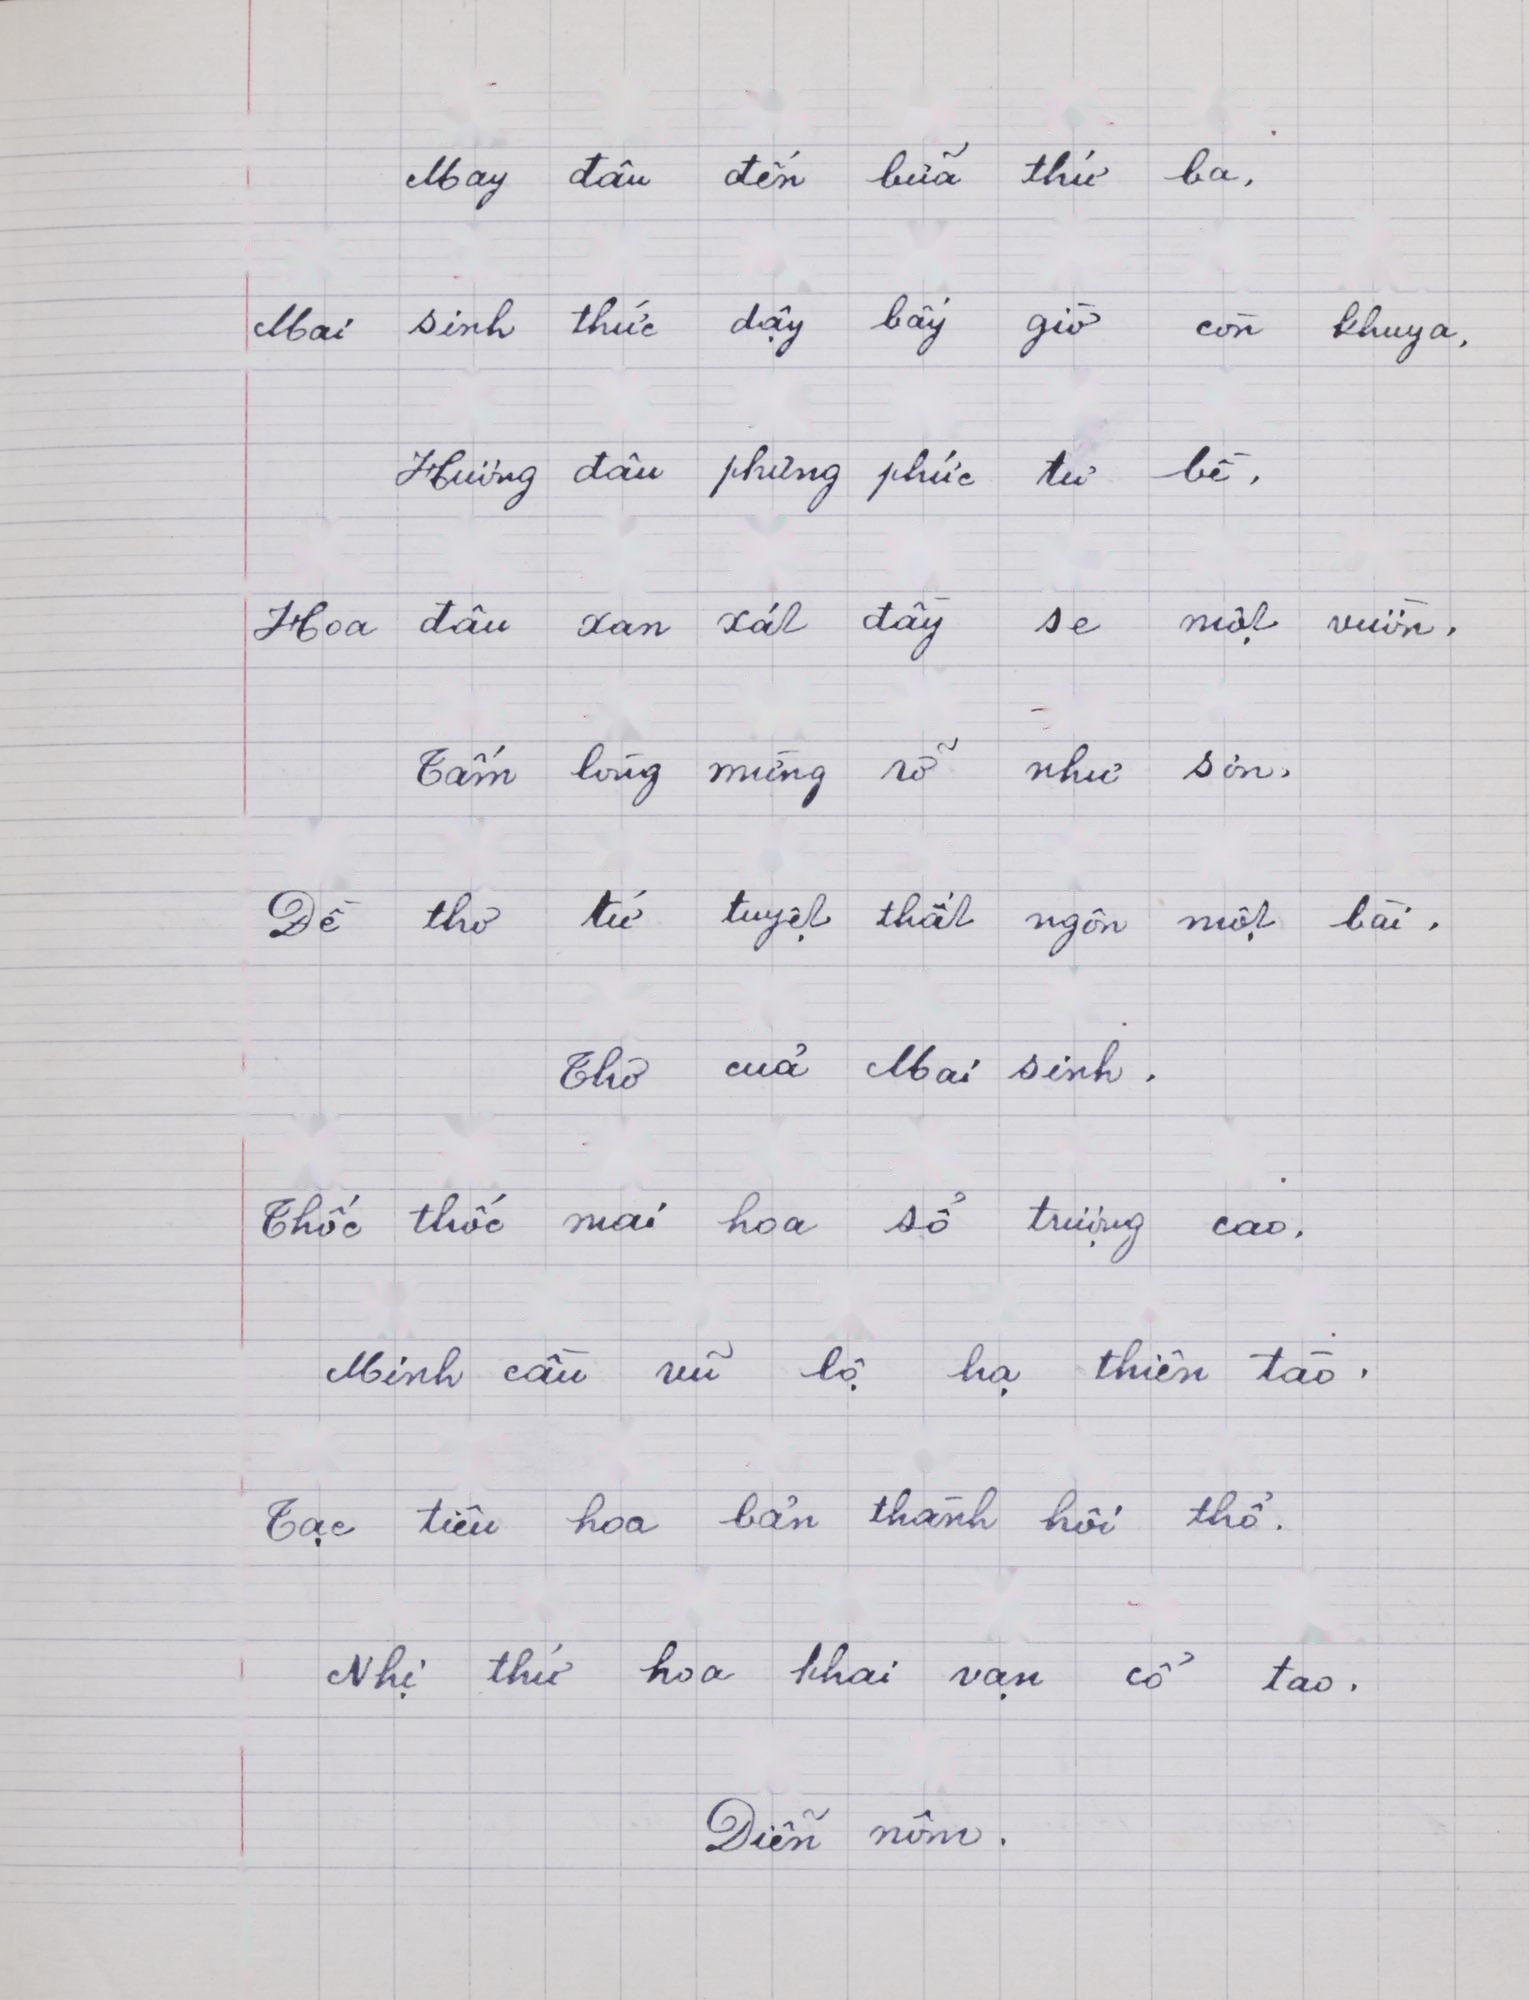 May đâu đến bữa thứ ba,
Mai sinh thức dậy bấy giờ còn khuya,
Hương đâu phưng phức tư bề,
Hoa đâu xan xát đầy se một vườn.
Tấm lòng mừng rỡ như sơn,
Đề thơ tứ tuyệt thất ngôn một bài.
Thơ của Mai sinh.
Thốc thốc mai hoa sổ trượng cao,
Minh cầu vũ lộ hạ thiên tào.
Tạc tiêu hoa bản thành hôi thổ.
Nhị thứ hoa khai vạn cổ tao.
Diễn nôm.